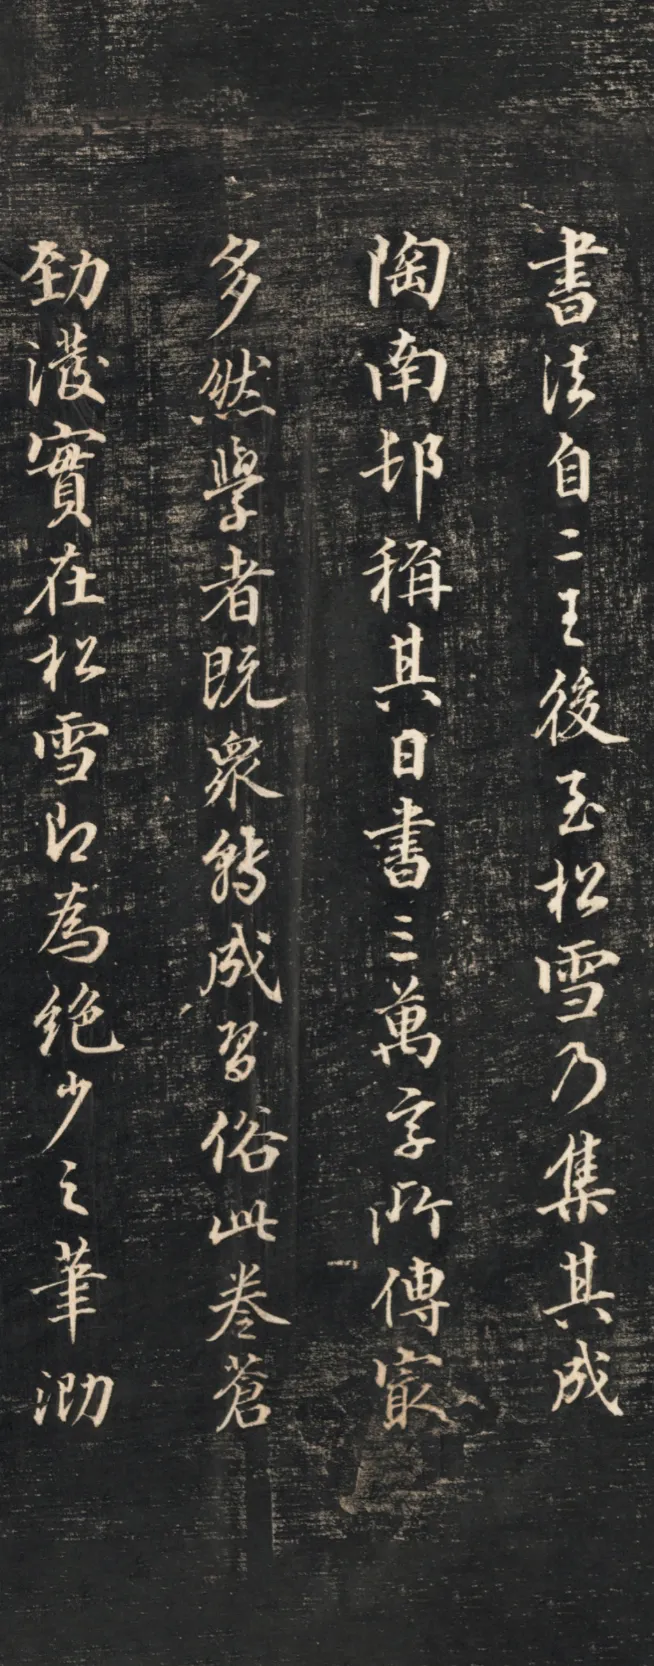 書法自二王後至松雪乃集其成
陶南邨稱其日書三萬字所傳寂
多然學者既衆轉成習俗此卷蒼
勁濃實在松雪即為絶少之筆泐